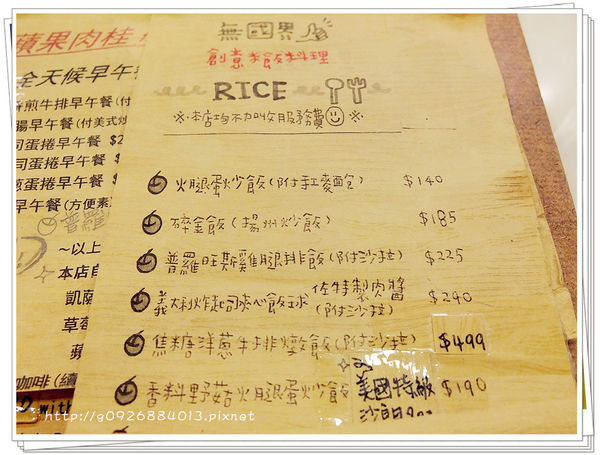 無國界
創意米飯料理
RICE
※本店均不加收服務費☺※
火腿蛋炒飯(附紅麥麵包) $140
碎金飯(揚州炒飯) $185
普羅旺斯雞腿排飯(附沙拉) $225
義大利炸起司夾心飯球 佐特製肉醬(附沙拉) $240
焦糖洋蔥牛排燉飯(附沙拉) $499
香料野菇火腿蛋炒飯 $190
美國特級
沙朗
蘋果肉桂
全天候早午
煎牛排早午餐(付
腸早午餐(付美式炒
司蛋捲早午餐 $2
司蛋捲早午餐 $
蔥蛋捲早午餐 $
早午餐(方便素)
普羅
~以上
本店自
凱薩
草莓
蘋
咖啡(續
with
http://g0926884013.pixnet